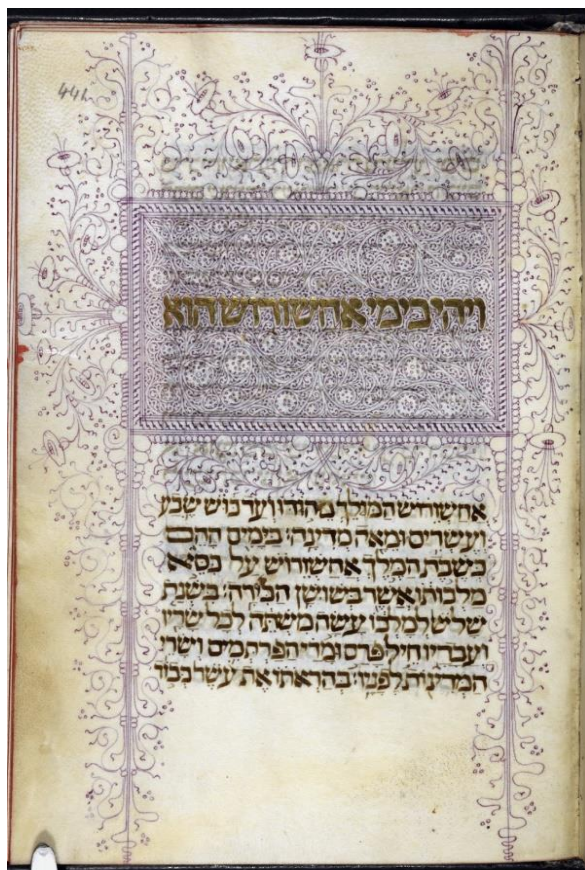 441
ויהי בימי אחשורוש הוא
אחשורוש המולך מהודו ועד כוש שבע
ועשרים ומאה מדינה׃ בימים ההם
כשבת המלך אחשורוש על כסא
מלכותו אשר בשושן הבירה׃ בשנת
שלוש למלכו עשה משתה לכל שריו
ועבדיו חיל פרס ומדי הפרתמים ושרי
המדינות לפניו׃ בהראתו את עשר כבוד